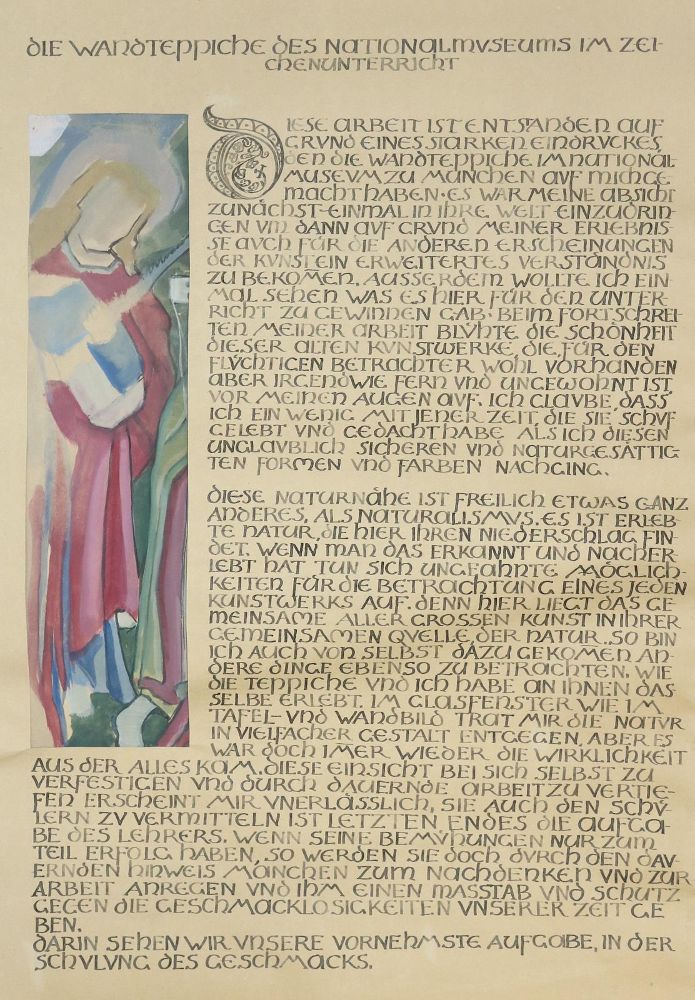 DIE WANDTEPPICHE DES NATIONALMVSEUMS IM ZEI-
CHENUNTERRICHT
DIESE ARBEIT IST ENTSTANDEN AUF
GRVND EINES STARKEN EINDRVCKES,
DEN DIE WANDTEPPICHE IM NATIONAL
MUSEVM ZU MÜNCHEN AVF MICH GE
MACHT HABEN·ES WAR MEINE ABSICHT
ZUNÄCHST EINMAL IN IHRE WELT EINZUDRIN-
GEN VM DANN AVF GRVND MEINER ERLEBNIS-
SE AVCH FÜR DIE ANDEREN ERSCHEINUNGEN
DER KVNST EIN ERWEITERTES VERSTÄNDNIS
ZU BEKOMEN. AUSSERDEM WOLLTE ICH EIN-
MAL SEHEN WAS ES HIER FÜR DEN UNTER-
RICHT ZU GEWINNEN GAB·BEIM FORTSCHREI-
TEN MEINER ARBEIT BLVHTE DIE SCHÖNHEIT
DIESER ALTEN KVNSTWERKE, DIE FÜR DEN
FLVCHTIGEN BETRACHTER WOHL VORHANDEN
ABER IRGENDWIE FERN VND UNGEWOHNT IST,
VOR MEINEN AUGEN AVF. ICH GLAVBE, DASS
ICH EIN WENIG MIT JENER ZEIT, DIE SIE SCHVF
GELEBT VND GEDACHT HABE ALS ICH DIESEN
UNGLAVBLICH SICHEREN VND NATURGESÄTTIG-
TEN FORMEN VND FARBEN NACHGING.
DIESE NATURNÄHE IST FREILICH ETWAS GANZ
ANDERES, ALS NATURALISMVS. ES IST ERLEB-
TE NATUR, DIE HIER IHREN NIEDERSCHLAG FIN-
DET. WENN MAN DAS ERKANNT UND NACHER-
LEBT HAT TUN SICH UNGEAHNTE MÖGLICH-
KEITEN FÜR DIE BETRACHTUNG EINES JEDEN
KUNSTWERKS AUF. DENN HIER LIEGT DAS GE-
MEINSAME ALLER GROSSEN KUNST IN IHRER
GEMEINSAMEN QVELLE, DER NATUR. SO BIN
ICH AUCH VON SELBST DAZU GEKOMEN AN-
DERE DINGE EBENSO ZU BETRACHTEN, WIE
DIE TEPPICHE VND ICH HABE AN IHNEN DAS-
SELBE ERLEBT. IM GLASFENSTER WIE IM
TAFEL- VND WANDBILD TRAT MIR DIE NATVR
IN VIELFACHER GESTALT ENTGEGEN, ABER ES
WAR DOCH IMER WIEDER DIE WIRKLICHKEIT
AUS DER ALLES KAM. DIESE EINSICHT BEI SICH SELBST ZU
VERFESTIGEN VND DURCH DAUERNDE ARBEIT ZU VERTIE-
FEN ERSCHEINT MIR VNERLÄSSLICH, SIE AUCH DEN SCHÜ-
LERN ZV VERMITTELN IST LETZTEN ENDES DIE AUFGA-
BE DES LEHRERS. WENN SEINE BEMVHUNGEN NUR ZUM
TEIL ERFOLG HABEN, SO WERDEN SIE DOCH DVRCH DEN DAV-
ERNDEN HINWEIS MANCHEN ZUM NACHDENKEN VND ZUR
ARBEIT ANREGEN VND IHM EINEN MASSTAB VND SCHUTZ
GEGEN DIE GESCHMACKLOSIGKEITEN VNSERER ZEIT GE
BEN.
DARIN SEHEN WIR VNSERE VORNEHMSTE AUFGABE, IN DER
SCHVLVNG DES GESCHMACKS.